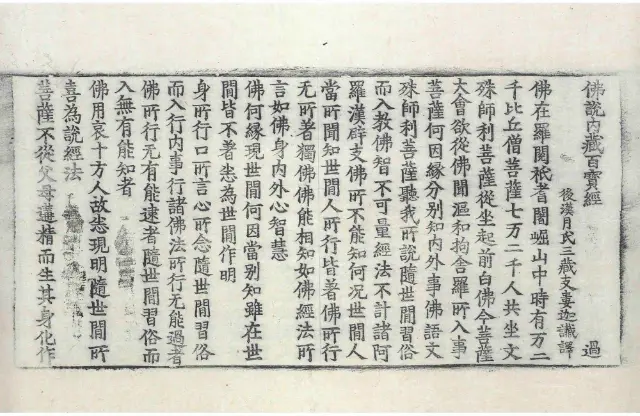 佛說內藏百寶經 過
後漢月氏三藏支婁迦讖譯
佛在羅閱祇耆闍崛山中時有万二
千比丘僧菩薩七万二千人共坐文
殊師利菩薩從坐起前白佛今菩薩
大會欲從佛聞漚和拘舍羅所入事
菩薩何因緣分別知內外事佛語文
殊師利菩薩聽我所說隨世閒習俗
而入教佛智不可量經法不計諸阿
羅漢辟支佛所不能知何況世閒人
當所聞知世閒人所行皆著佛所行
无所著獨佛佛能相知如佛經法所
言如佛身內外心智慧
佛何緣現世閒何因當別知雖在世
閒皆不著悉為世閒作明
身所行口所言心所念隨世閒習俗
而入行內事行諸佛法所行无能過者
佛所行无有能逮者隨世閒習俗而
入無有能知者
佛用哀十方人故悉現明隨世閒所
喜為說經法
菩薩不從父母遘精而生其身化作